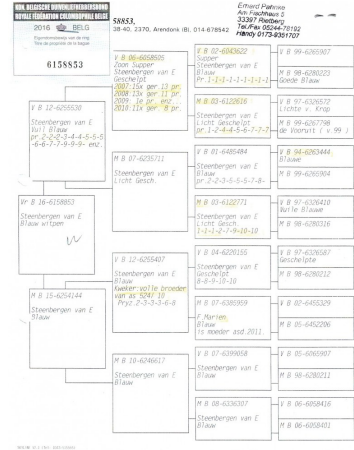 KON. BELGISCHE DUIVENLIEFHEBBERSBOND
ROYALE FEDERATION COLOMBOPHILE BELGE
2016 BELG
Eigendomsbewijs van de ring
Titre de propriété de la bague
6158853
58853,
38-40, 2370, Arendonk (B), 014-678542
Erhard Pahnke
Am Fischhaus 5
33397 Rietberg
Tel./Fax 05244-78192
Handy 0173-9351707
Vr B 16-6158853
Steenbergen van E
Blauw witpen
V B 12-6255530
Steenbergen van E
Vuil Blauw
pr.2-2-2-3-4-4-5-5
-6-6-7-7-9-9-9- enz.
M B 15-6254144
Steenbergen van E
Blauw
V B 06-6058505
Zoon Supper
Steenbergen van E
Geschelpt
2007:15x ger 13 pr.
2008:13x ger 11 pr.
2009: 1e pr. enz...
2010:11x ger 8 pr.
M B 07-6235711
Steenbergen van E
Licht Gesch.
V B 12-6255407
Steenbergen van E
Blauw
Kweker:volle broeder
van as 5247 10
Pryz 2-3-3-3-6-8
M B 10-6246617
Steenbergen van E
Blauw
V B 02-6043622
Supper
Steenbergen van E
Blauw
Pr.1-1-1-1-1-1-1-1-1
M B 03-6122616
Steenbergen van E
Licht Geschelpt
pr.1-2-4-4-5-6-7-7-7
V B 01-6485484
Steenbergen van E
Blauw
M B 03-6122771
Steenbergen van E
Licht Gesch.
1-1-1-2-7-9-10-10
V B 04-6220155
Steenbergen van E
Geschelpt
8-8-9-10-10
M B 07-6385959
F.Marien
Blauw
is moeder asd 2011.
V B 07-6399058
Steenbergen van E
Blauw
M B 08-6336307
Steenbergen van E
Blauw
V B 99-6265907
M B 98-6280223
Goede Blauw
V B 97-6326572
Lichte v. Krop
M B 99-6267798
de Vooruit ( v.99 )
V B 94-6263444
Blauwe
M B 99-6265904
V B 97-6326410
Vuile Blauwe
M B 98-6280316
V B 97-6326587
Geschelpte
M B 98-6280212
V B 02-6455329
M B 05-6452206
V B 05-6065907
M B 98-6280211
V B 06-6058416
M B 06-6058401